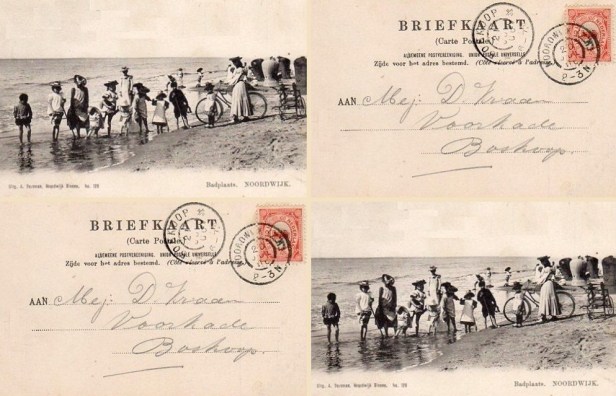 Uitg. A. Noorman, Noordwijk Binnen. No. 129
Badplaats. NOORDWIJK.
BRIEFKAART
(Carte Postale)
ALGEMEENE POSTVEREENIGING. UNION POSTALE UNIVERSELLE
Zijde voor het adres bestemd. (Côté réservé à l'adresse)
BOSKOOP
NOORDWIJK
2-3N
AAN Mej: D. Kraan
Voorkade
Boskoop.
BRIEFKAART
(Carte Postale)
ALGEMEENE POSTVEREENIGING. UNION POSTALE UNIVERSELLE
Zijde voor het adres bestemd. (Côté réservé à l'adresse)
BOSKOOP
NOORDWIJK
2-3N
AAN Mej: D. Kraan
Voorkade
Boskoop.
Badplaats. NOORDWIJK.